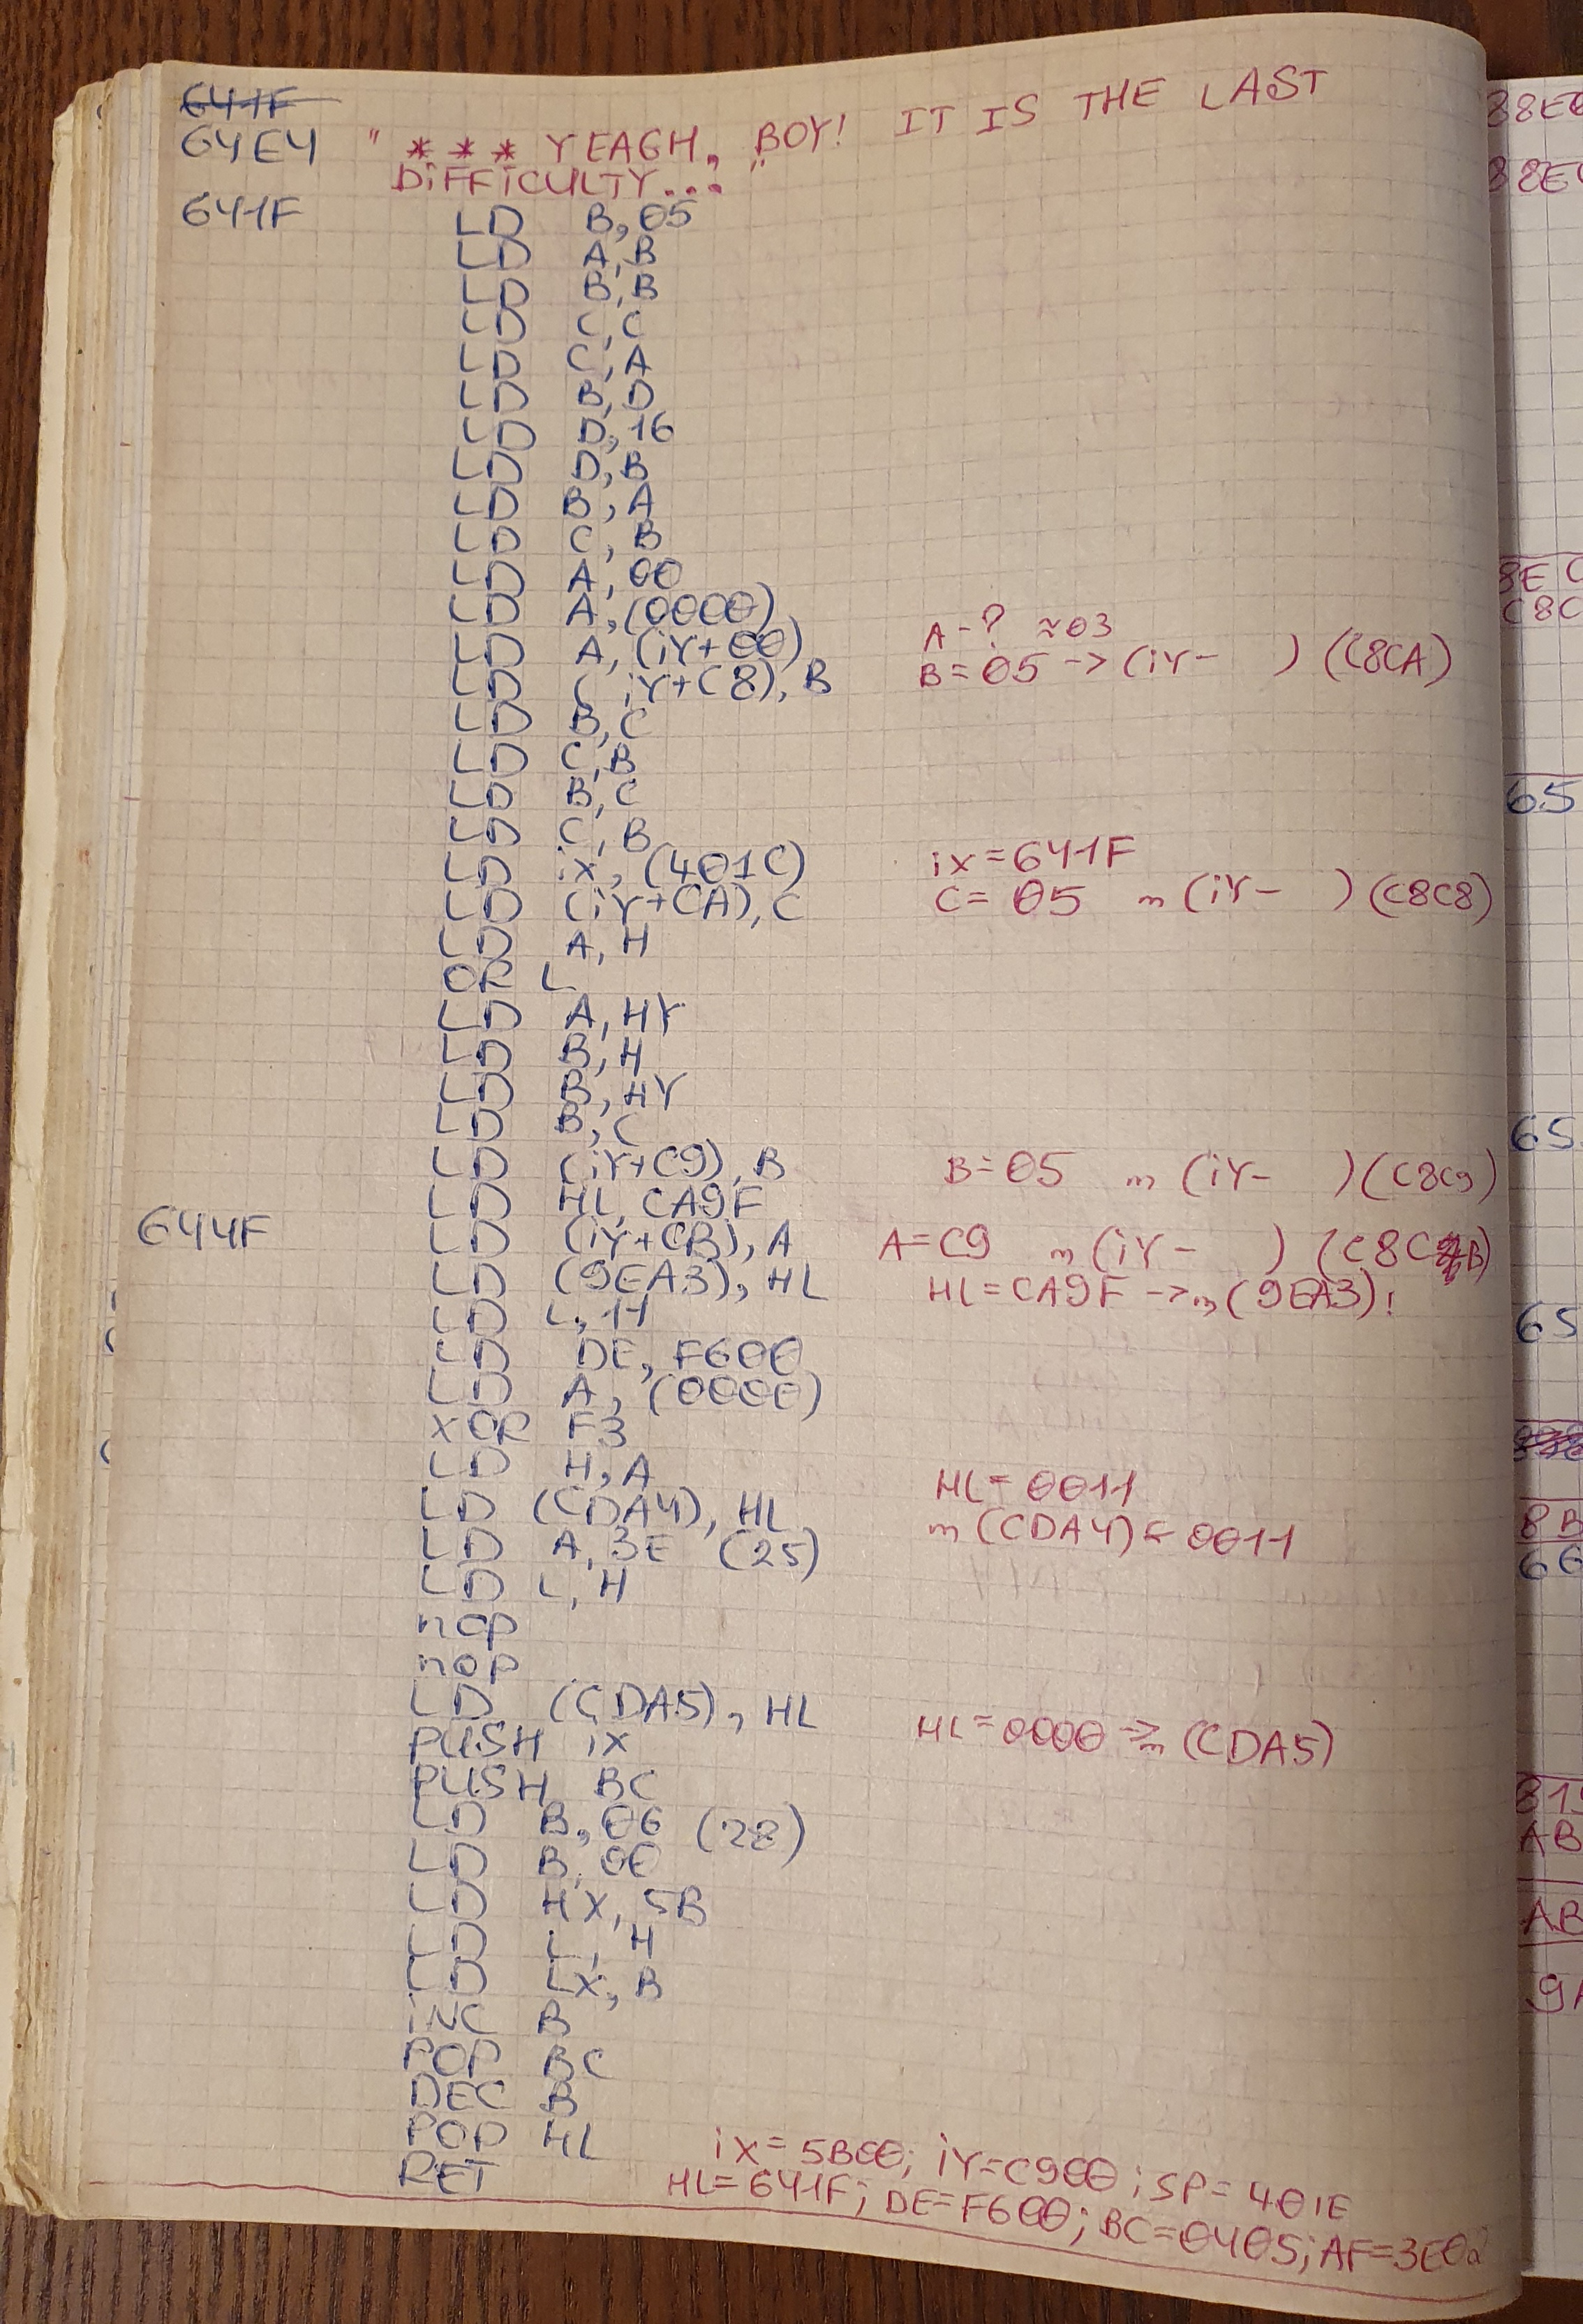 641F
64E4 " *** YEAGH, BOY! IT IS THE LAST
DiFFiCULTY... "
641F LD B,05
LD A,B
LD B,B
LD C,C
LD C,A
LD B,D
LD D,16
LD D,B
LD B,A
LD C,B
LD A,00
LD A,(0000)
LD A,(iY+00) A-? ≈03
LD (iY+C8),B B=05 -> (iY- ) (C8CA)
LD B,C
LD C,B
LD B,C
LD C,B
LD iX,(401C) iX=641F
LD (iY+CA),C C=05 m (iY- ) (C8C8)
LD A,H
OR L
LD A,HY
LD B,H
LD B,HY
LD B,C
LD (iY+C9),B B=05 m (iY- ) (C8C9)
LD HL,CA9F
644F LD (iY+CB),A A=C9 m (iY- ) (C8CB)
LD (9EA3),HL HL=CA9F -> m (9EA3)!
LD L,11
LD DE,F600
LD A,(0000)
XOR F3
LD H,A HL=0011
LD (CDA4),HL m (CDA4) < 0011
LD A,3E (25)
LD L,H
nop
nop
LD (CDA5),HL HL=0000 => m (CDA5)
PUSH iX
PUSH BC
LD B,06 (28)
LD B,00
LD HX,5B
LD L,H
LD LX,B
iNC B
POP BC
DEC B
POP HL
RET iX=5B00; iY=C900; SP=401E
HL=641F; DE=F600; BC=0405; AF=3E02
88E
88E
8E C
C8C
65
65
65
8B
66
81
AB
AB
9A